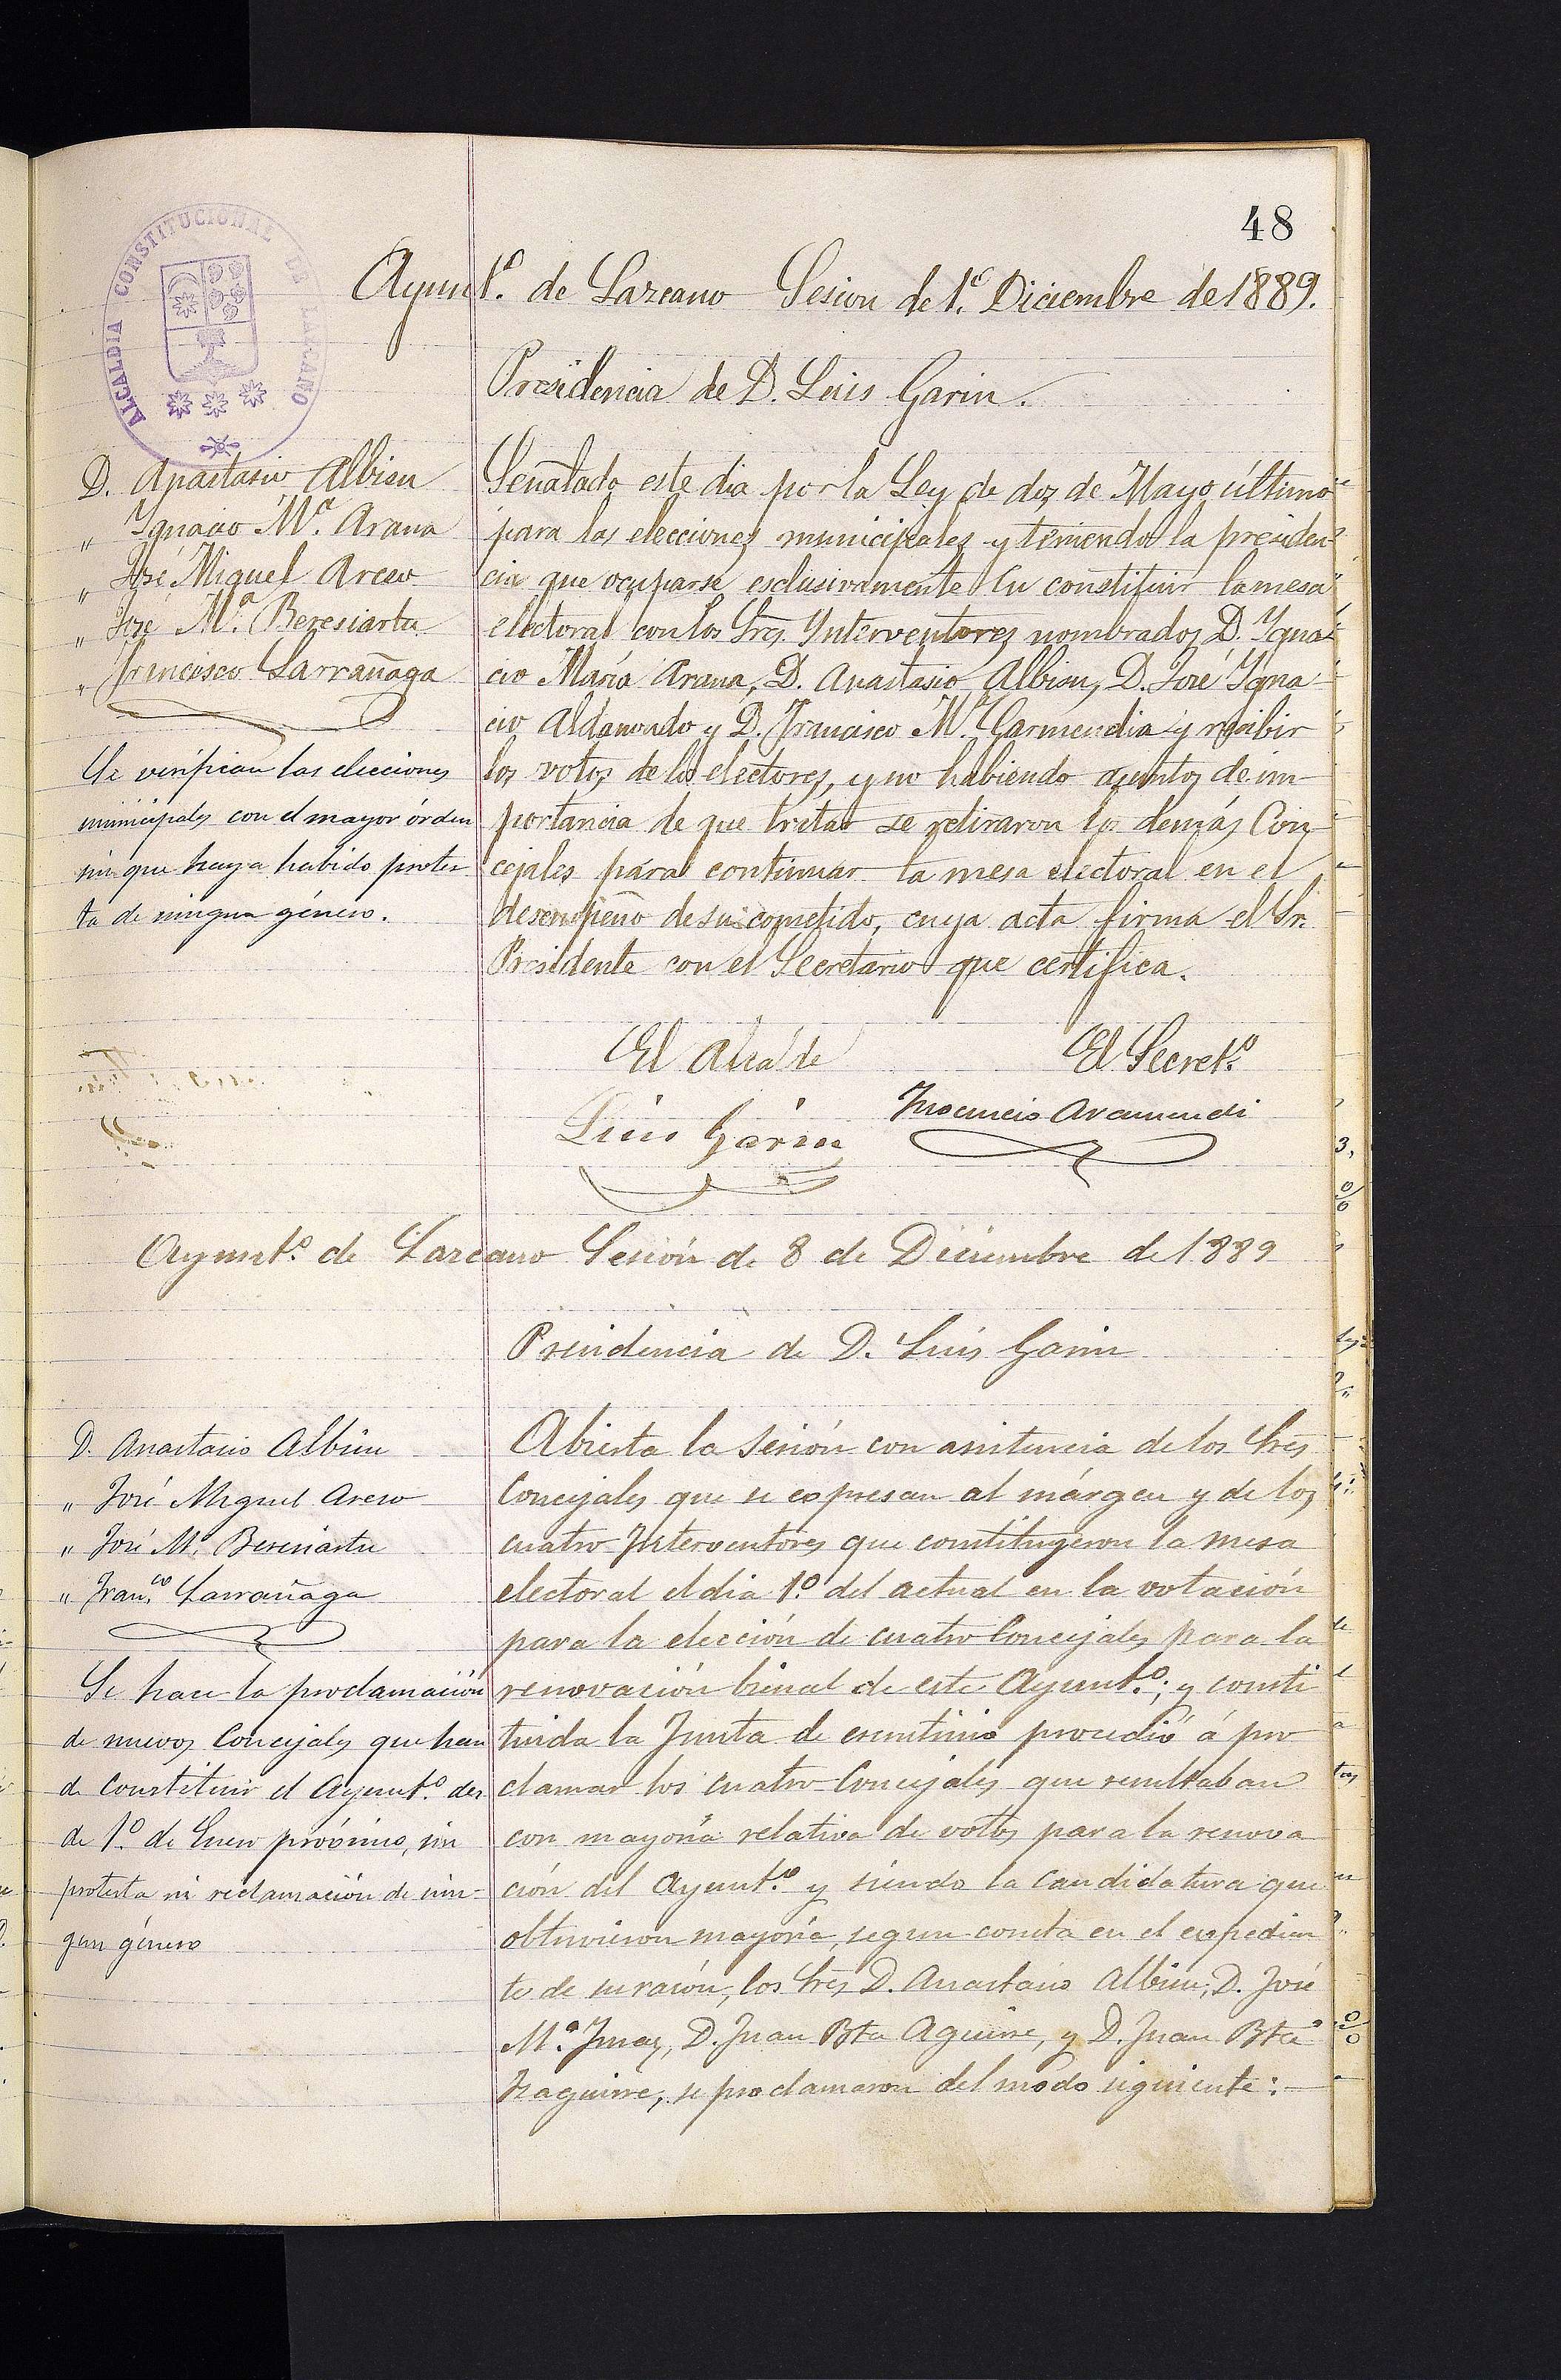 48
ALCALDIA CONSTITUCIONAL DE LAZCANO
Ayunt.º de Lazcano Sesion de 1.º Diciembre de 1889.
Presidencia de D. Luis Garin.
D. Anastasio Albisu
„ Ygnacio M.ª Arana
„ José Miguel Areso
„ José M.ª Beresiartu
„ Francisco Larrañaga
Se verifican las elecciones
municipales con el mayor órden
sin que haya habido protes-
ta de ningun género.
Señalado este dia por la Ley de dos de Mayo último
para las elecciones municipales y teniendo la presiden-
cia que ocuparse esclusivamente en constituir la mesa
electoral con los Sres. Interventores nombrados D. Ygna-
cio María Arana, D. Anastasio Albisu, D. José Ygna-
cio Aldanondo y D. Francisco M.ª Garmendia y recibir
los votos de los electores, y no habiendo asuntos de im-
portancia de que tratar se retiraron los demás Con-
cejales para continuar la mesa electoral en el
desempeño de su cometido, cuya acta firma el Sr.
Presidente con el Secretario que certifica.
El Alcalde El Secret.º
Luis Garin Inocencio Aramendi
Ayunt.º de Lazcano Sesión de 8 de Diciembre de 1889
Presidencia de D. Luis Garin
D. Anastasio Albisu
„ José Miguel Areso
„ José M.ª Beresiartu
„ Fran.co Larrañaga
Se hace la proclamación
de nuevos Concejales que han
de constituir el Ayunt.º des
de 1.º de Enero próximo, sin
protesta ni reclamación de nin-
gun género
Abierta la sesión con asistencia de los Sres
Concejales que se expresan al márgen y de los
cuatro Interventores que constituyeron la mesa
electoral el dia 1.º del actual en la votación
para la elección de cuatro Concejales para la
renovación bienal de este Ayunt.º; y consti
tuida la Junta de escrutinio procedió á pro
clamar los cuatro Concejales que resultaban
con mayoría relativa de votos para la renova
ción del Ayunt.º y siendo la candidatura que
obtuvieron mayoría, segun consta en el expedien
te de su razón, los Sres D. Anastasio Albisu, D. José
M.ª Imaz, D. Juan Bta Aguirre, y D. Juan Bta
Izaguirre, se proclamaron del modo siguiente: